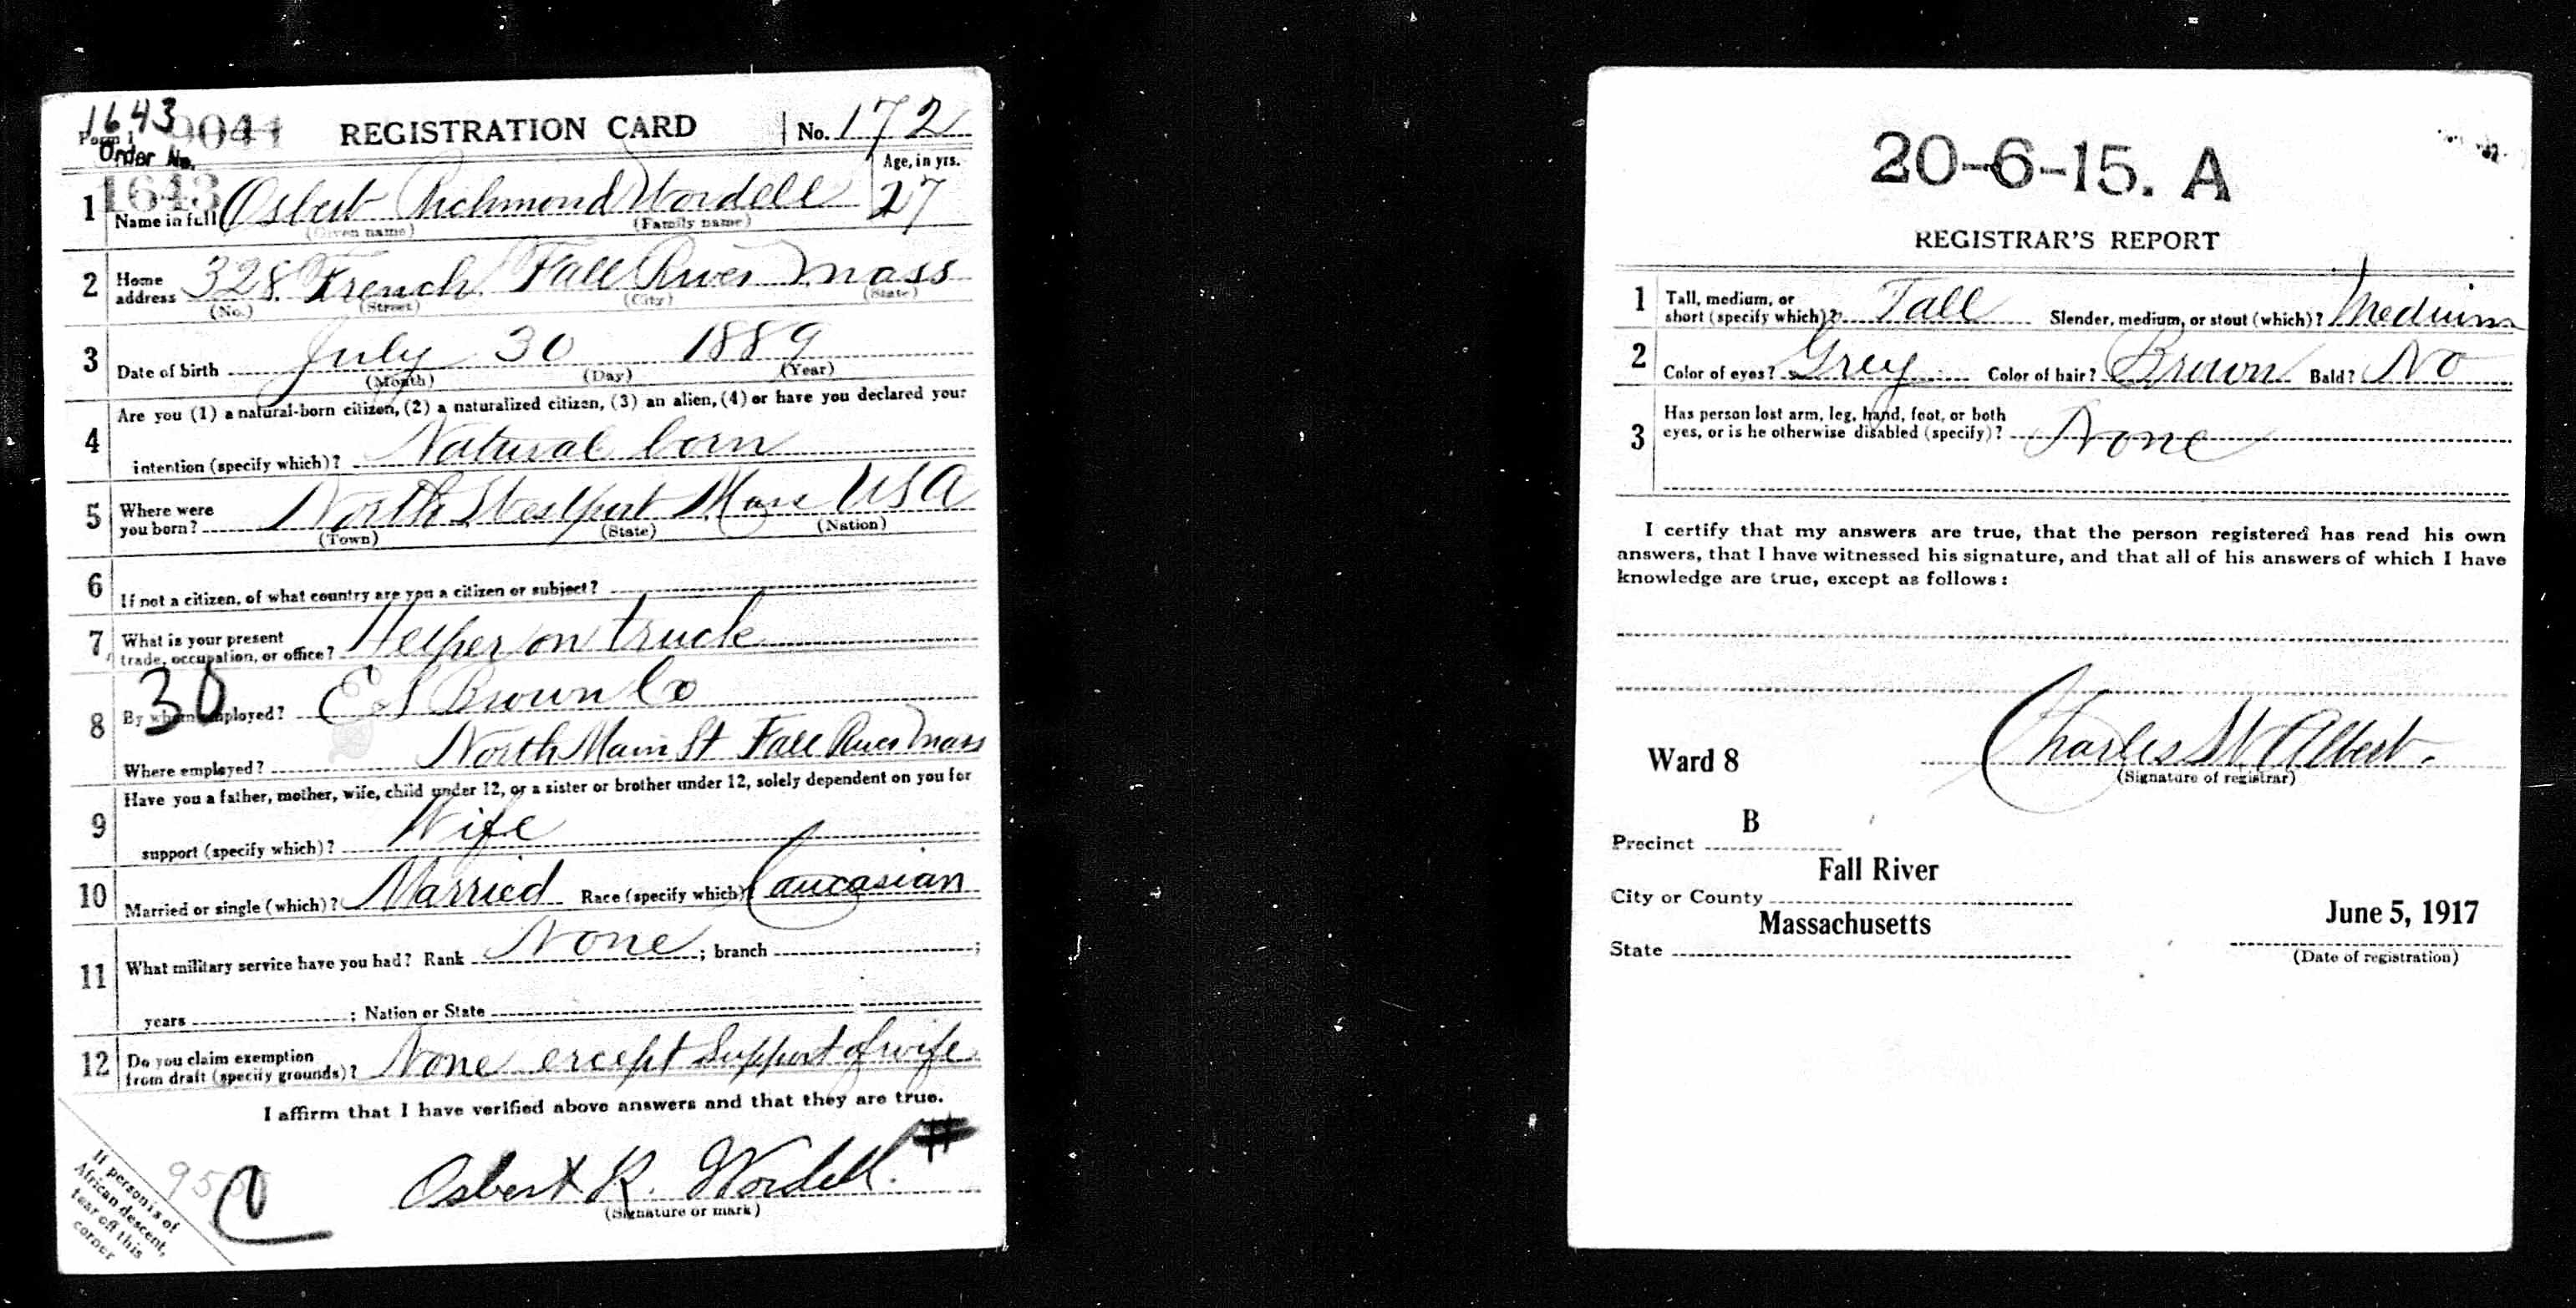 1643
Form 1 9041 REGISTRATION CARD No. 172
Order No.
1643
Age, in yrs.
1 Name in full Osbert Richmond Wordell 27
(Given name) (Family name)
2 Home address 328 French Fall River Mass
(No.) (Street) (City) (State)
3 Date of birth July 30 1889
(Month) (Day) (Year)
Are you (1) a natural-born citizen, (2) a naturalized citizen, (3) an alien, (4) or have you declared your
4 intention (specify which)? Natural born
5 Where were you born? North Westport Mass USA
(Town) (State) (Nation)
6 If not a citizen, of what country are you a citizen or subject?
7 What is your present trade, occupation, or office? Helper on truck
30
8 By whom employed? E S Brown Co
Where employed? North Main St Fall River Mass
Have you a father, mother, wife, child under 12, or a sister or brother under 12, solely dependent on you for
9 support (specify which)? Wife
10 Married or single (which)? Married Race (specify which)? Caucasian
11 What military service have you had? Rank None ; branch ;
years ; Nation or State
12 Do you claim exemption from draft (specify grounds)? None except Support of wife
I affirm that I have verified above answers and that they are true.
Osbert R. Wordell.
(Signature or mark)
C
If person is of
African descent,
tear off this
corner
20-6-15. A
REGISTRAR'S REPORT
1 Tall, medium, or short (specify which)? Tall Slender, medium, or stout (which)? Medium
2 Color of eyes? Grey Color of hair? Brown Bald? No
Has person lost arm, leg, hand, foot, or both
3 eyes, or is he otherwise disabled (specify)? None
I certify that my answers are true, that the person registered has read his own
answers, that I have witnessed his signature, and that all of his answers of which I have
knowledge are true, except as follows:
Ward 8 Charles W Albert.
(Signature of registrar)
Precinct B
City or County Fall River
State Massachusetts June 5, 1917
(Date of registration)